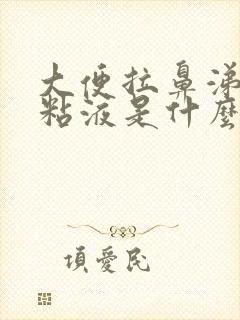 大便拉鼻涕
粘液是什麼
項愛民